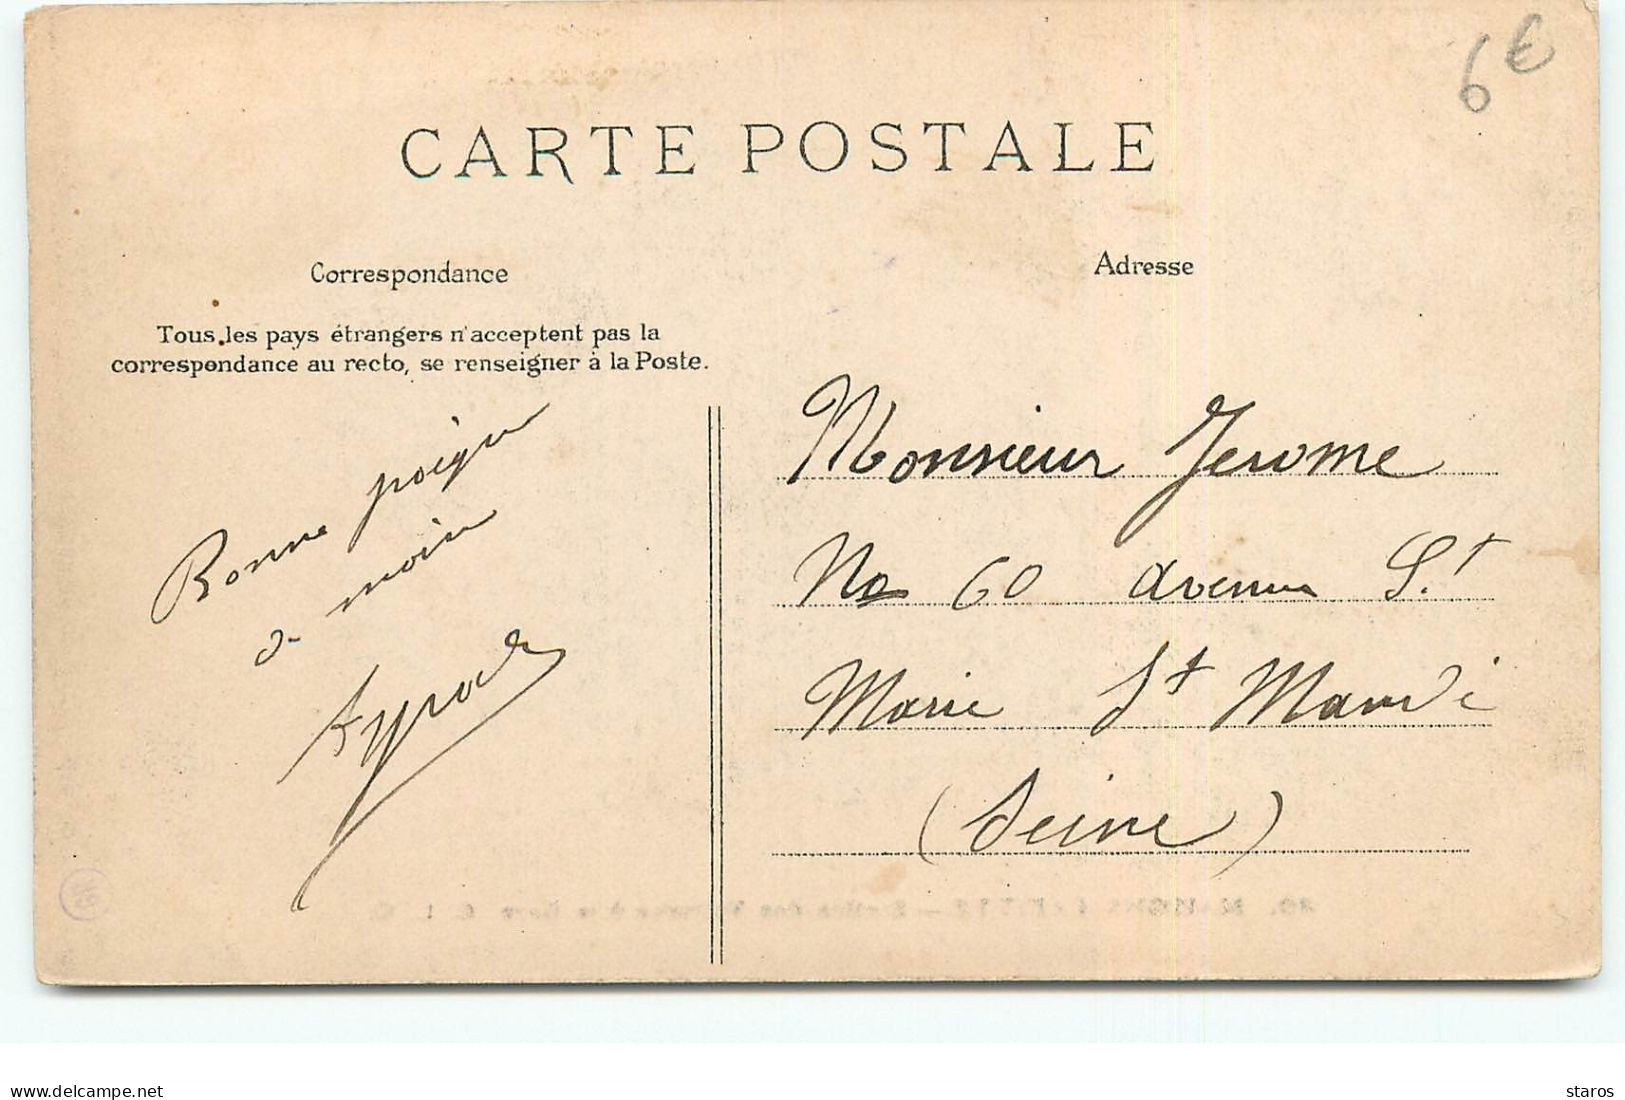 6€
CARTE POSTALE
Correspondance
Adresse
Tous les pays étrangers n'acceptent pas la
correspondance au recto, se renseigner à la Poste.
Bonne poigne
de main
Monsieur Jerome
No 60 avenue St
Marie St Mandé
(Seine)
delcampe.net
staros